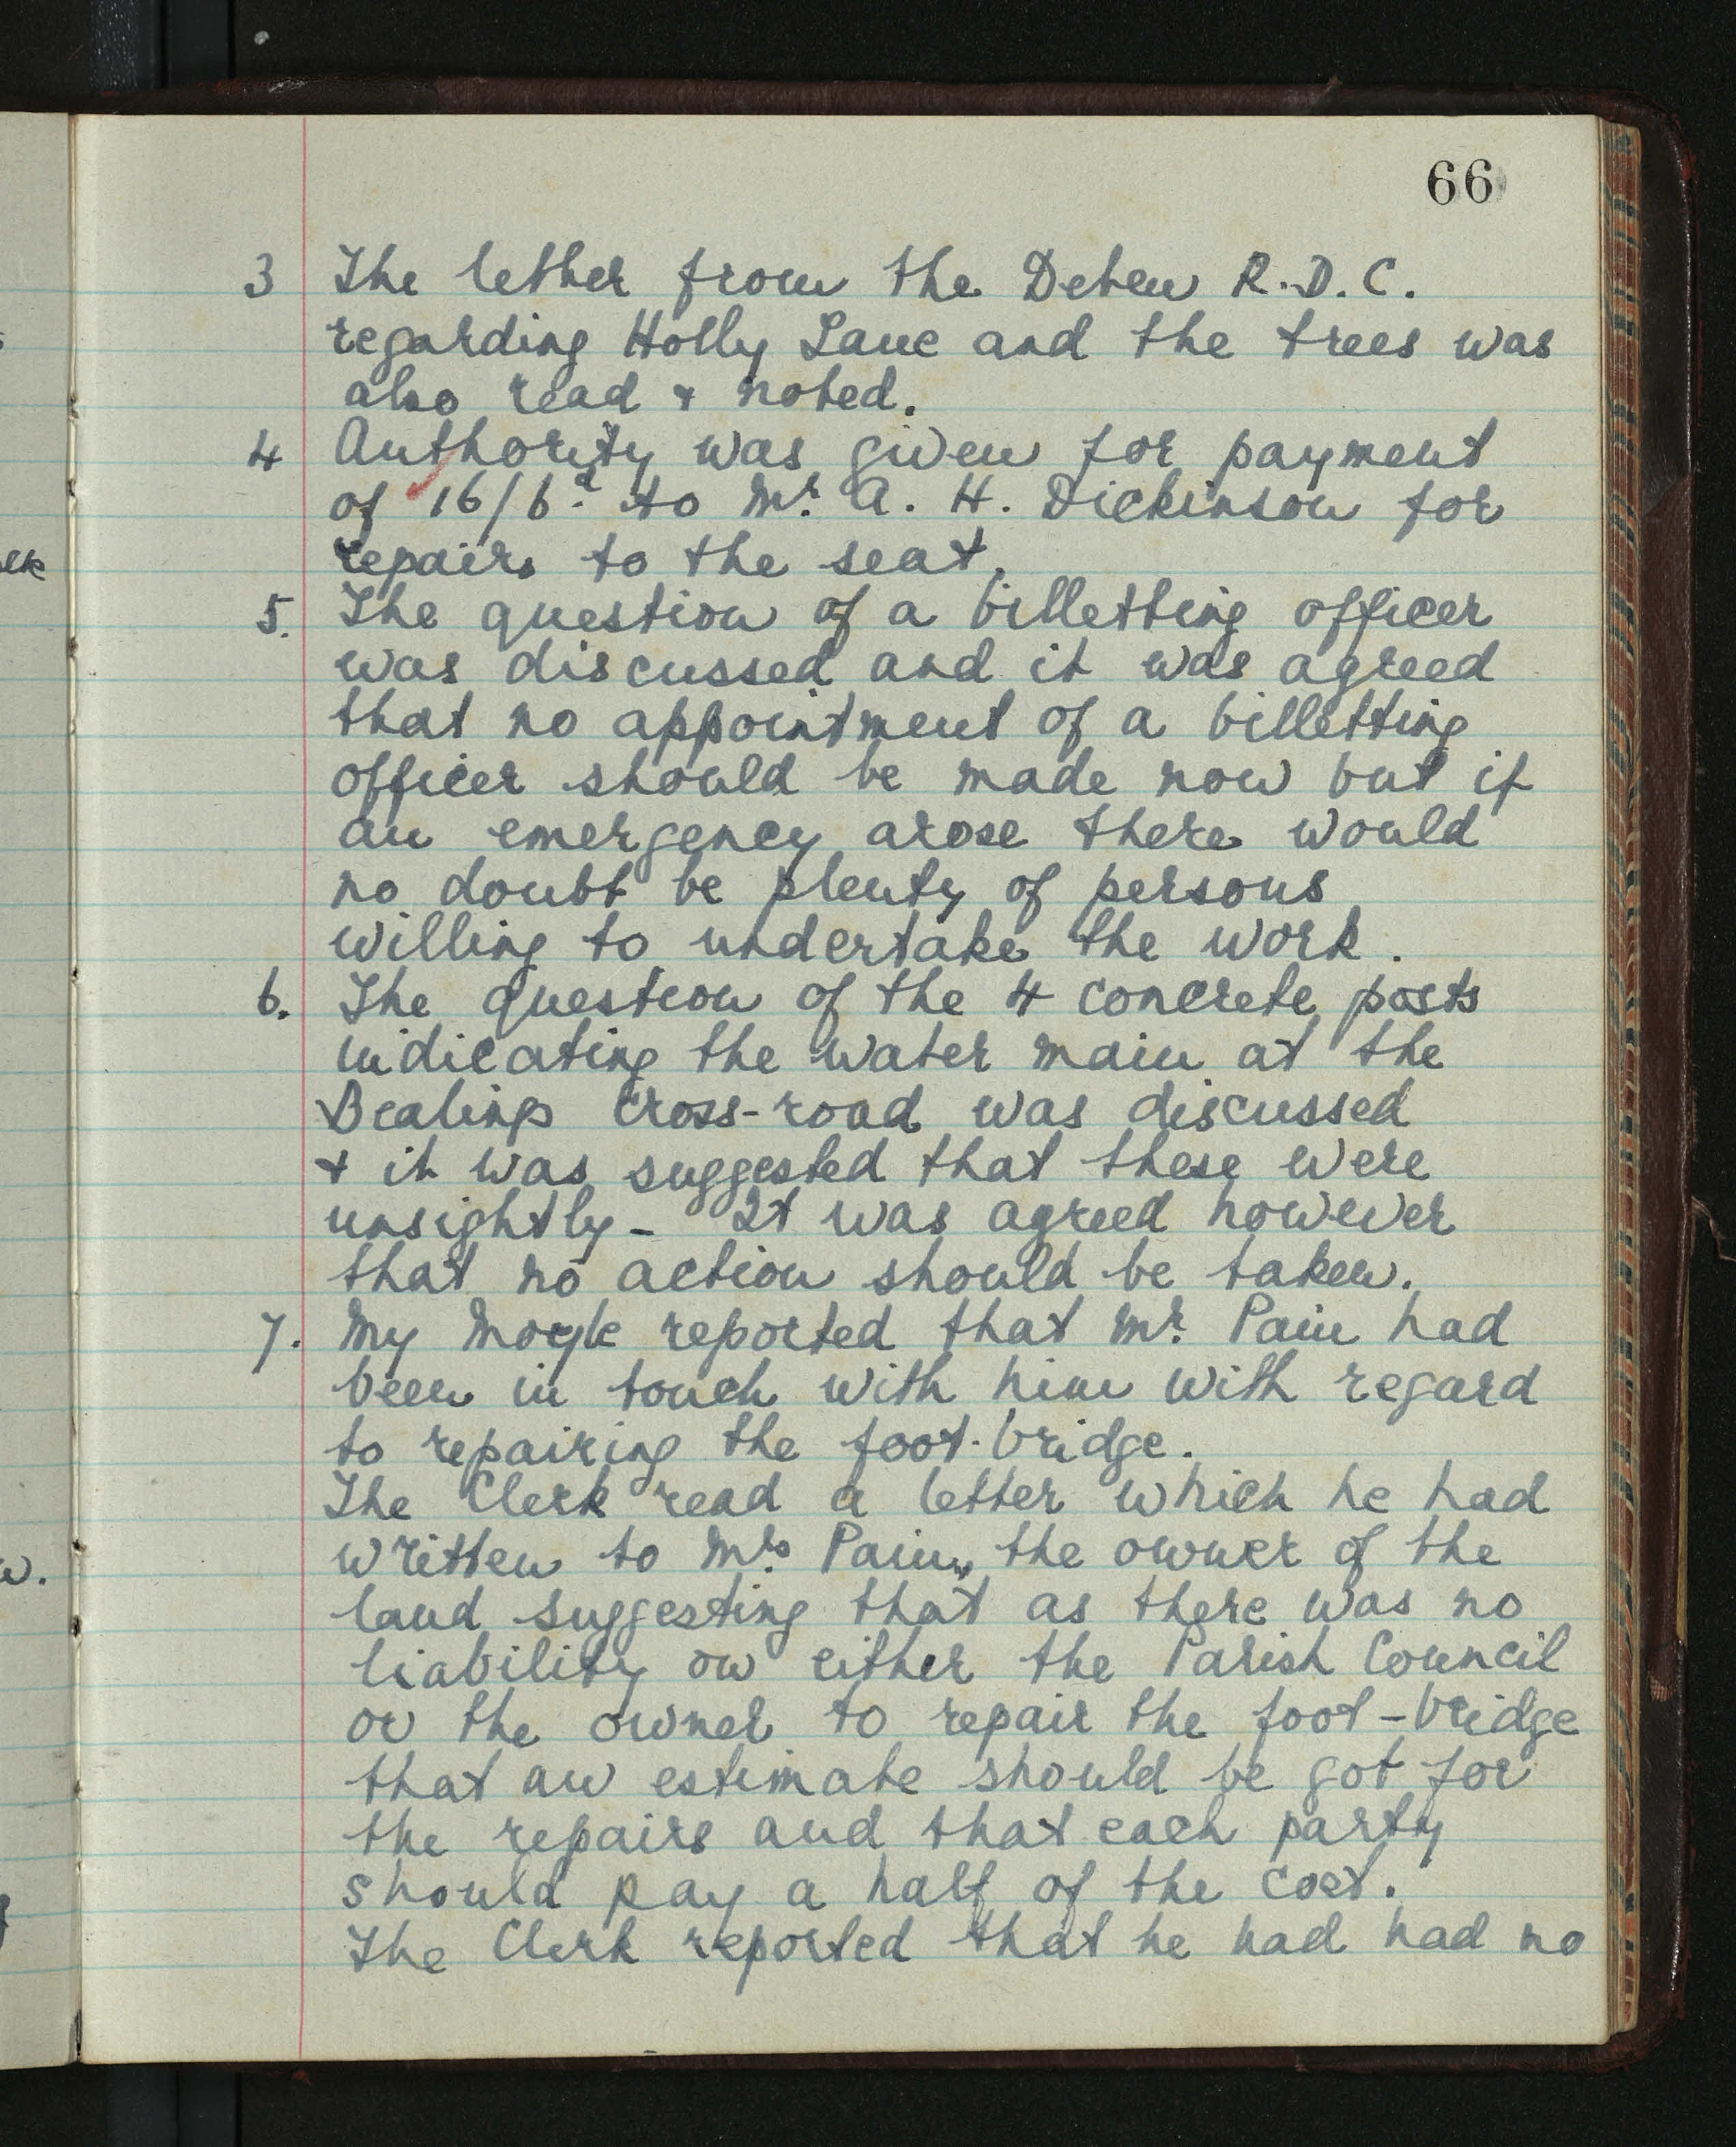 66
3 The letter from the Deben R.D.C.
regarding Holly Lane and the trees was
also read & noted.
4 Authority was given for payment
of 16/6d. to Mr. A. H. Dickinson for
repairs to the seat.
5. The question of a billetting officer
was discussed and it was agreed
that no appointment of a billetting
officer should be made now but if
an emergency arose there would
no doubt be plenty of persons
willing to undertake the work.
6. The question of the 4 concrete posts
indicating the water main at the
Bealings Cross-road was discussed
& it was suggested that these were
unsightly - It was agreed however
that no action should be taken.
7. My reported that Mr. Pain had
been in touch with him with regard
to repairing the foot-bridge.
The Clerk read a letter which he had
written to Mrs. Pain, the owner of the
land suggesting that as there was no
liability on either the Parish Council
or the owner to repair the foot-bridge
that an estimate should be got for
the repairs and that each party
should pay a half of the cost.
The Clerk reported that he had had no